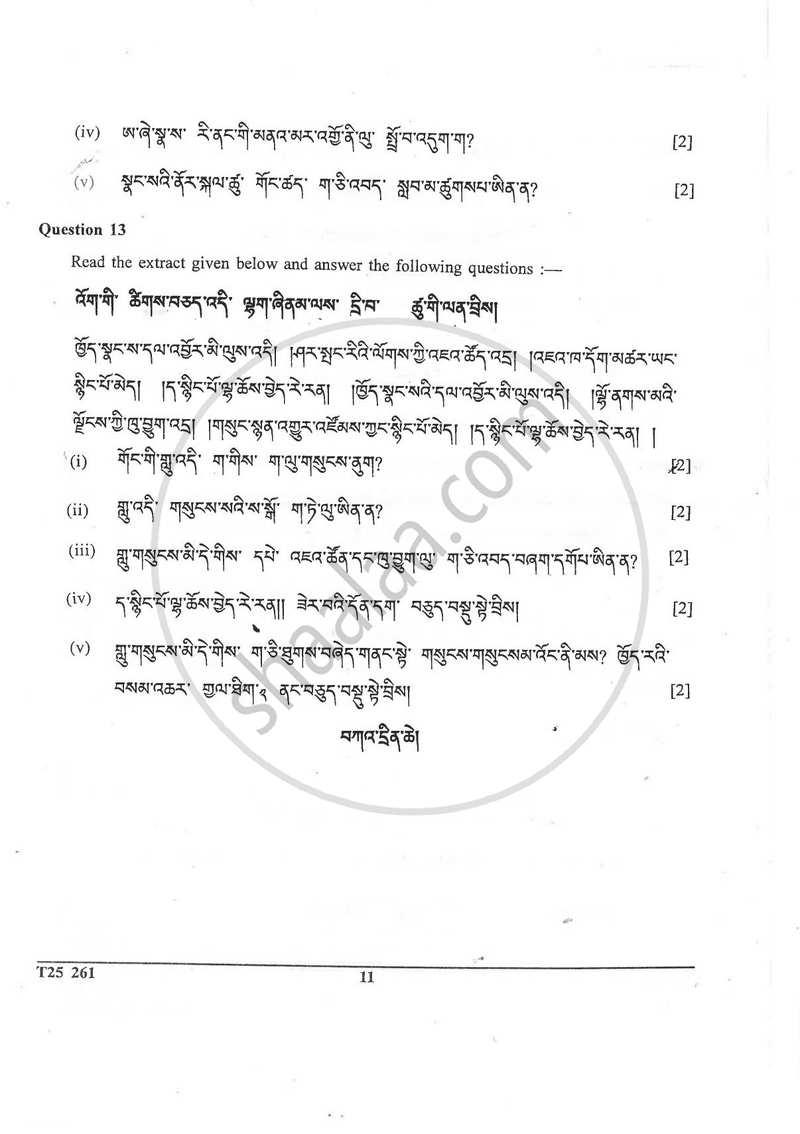 (iv) ཨ་ཞེ་སྣ་ས་ རི་ནང་གི་མནའ་མར་འགྱོ་ནི་ལུ་ སྤྲོ་བ་འདུག་ག? [2]
(v) སྣང་སའི་ནོར་སྐལ་ཚུ་ གོང་ཚད་ ག་ཅི་འབད་ སླབ་མ་ཚུགསཔ་ཨིན་ན? [2]
Question 13
Read the extract given below and answer the following questions :—
འོག་གི་ ཚིགས་བཅད་འདི་ ལྷག་ཞིནམ་ལས་ དྲི་བ་ ཚུ་གི་ལན་བྲིས།
ཁྱོད་སྣང་ས་དལ་འབྱོར་མི་ལུས་འདི། །ཤར་སྤང་རིའི་ལོགས་ཀྱི་འཇའ་ཚོད་འདྲ། །འཇའ་ཁ་དོག་མཚར་ཡང་
སྙིང་པོ་མེད། །ད་སྙིང་པོ་ལྷ་ཆོས་བྱེད་རེ་རན། །ཁྱོད་སྣང་སའི་དལ་འབྱོར་མི་ལུས་འདི། །ལྷོ་ནགས་མའི་
ལྗོངས་ཀྱི་ཁུ་བྱུག་འདྲ། །གསུང་སྙན་འགྱུར་འཛོམས་ཀྱང་སྙིང་པོ་མེད། །ད་སྙིང་པོ་ལྷ་ཆོས་བྱེད་རེ་རན། །
(i) གོང་གི་གླུ་འདི་ ག་གིས་ ག་ལུ་གསུངས་ནུག? [2]
(ii) གླུ་འདི་ གསུངས་སའི་ས་སྒོ་ ག་ཏེ་ལུ་ཨིན་ན? [2]
(iii) གླུ་གསུངས་མི་དེ་གིས་ དཔེ་ འཇའ་ཚོན་དང་ཁུ་བྱུག་ལུ་ ག་ཅི་འབད་བཞག་དགོཔ་ཨིན་ན? [2]
(iv) ད་སྙིང་པོ་ལྷ་ཆོས་བྱེད་རེ་རན།། ཟེར་བའི་དོན་དག་ བཅུད་བསྡུ་སྟེ་བྲིས། [2]
(v) གླུ་གསུངས་མི་དེ་གིས་ ག་ཅི་ཐུགས་བཞེད་གནང་སྟེ་ གསུངས་གསུངསམ་འོང་ནི་མས? ཁྱོད་རའི་
བསམ་འཆར་ གྱལ་ཐིག་༢ ནང་བཅུད་བསྡུ་སྟེ་བྲིས། [2]
བཀའ་དྲིན་ཆེ།
shaalaa.com
T25 261
11